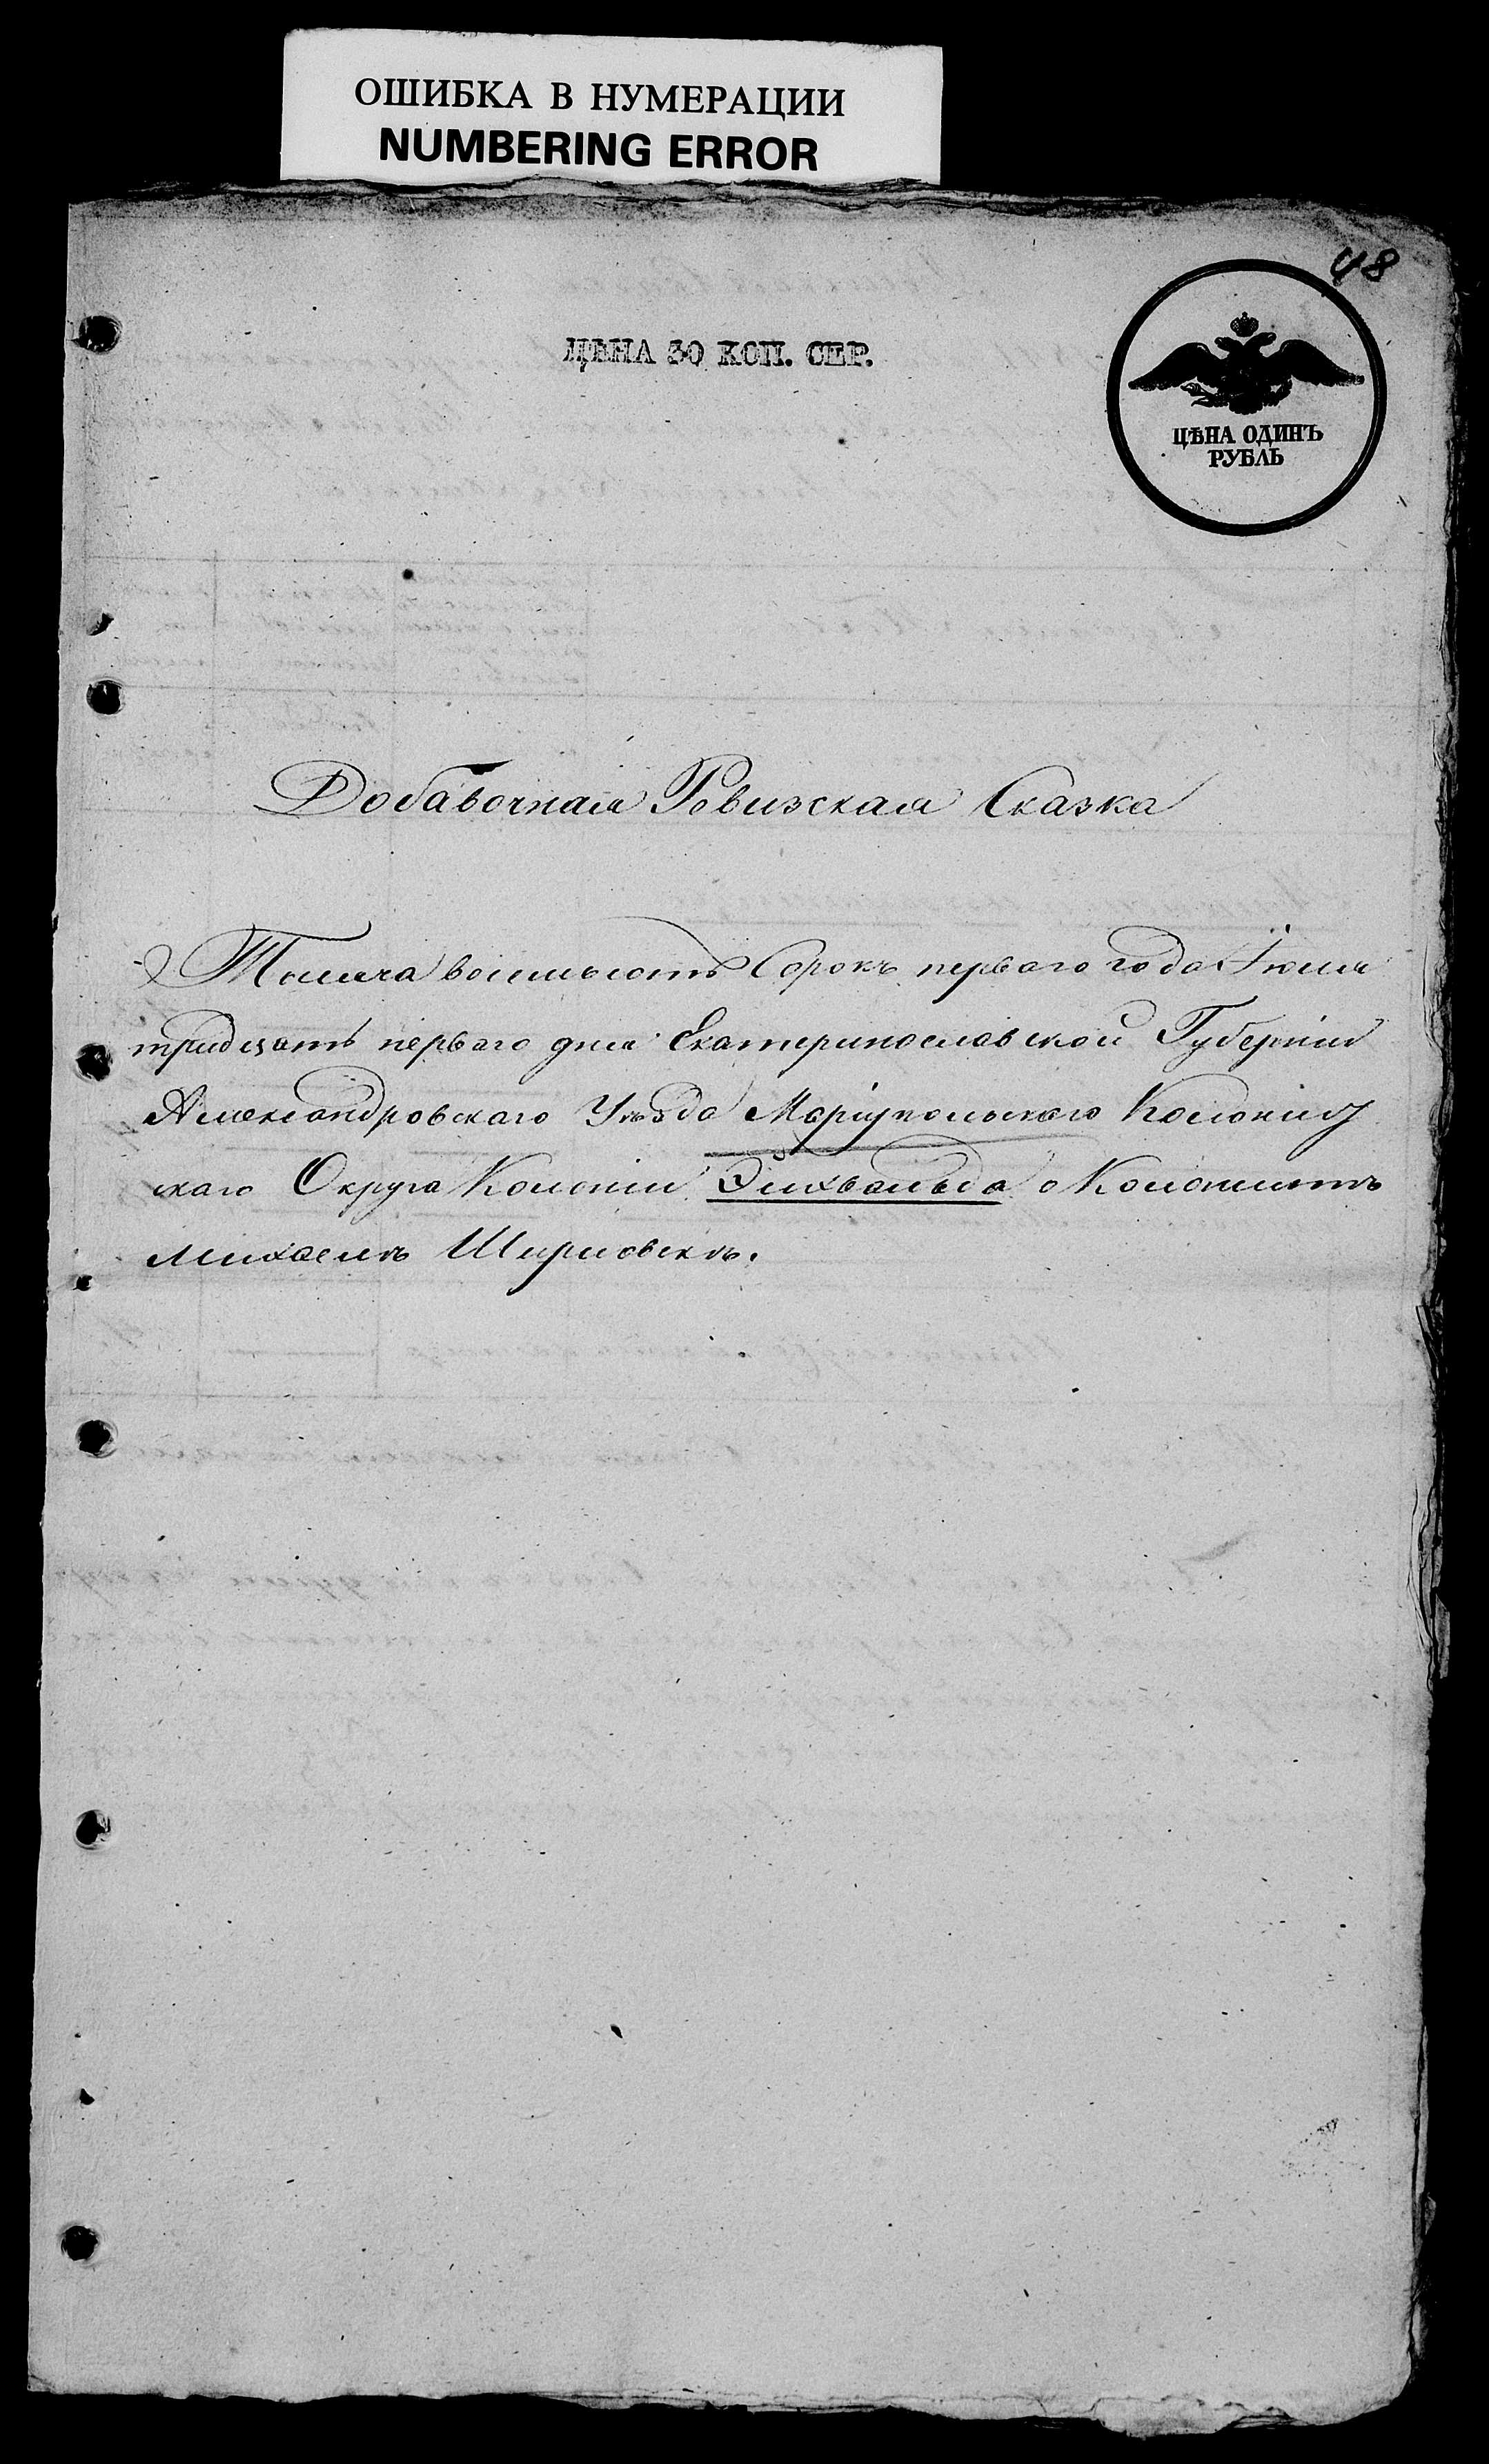 ОШИБКА В НУМЕРАЦИИ
NUMBERING ERROR
48
ЦѢНА 30 КОП. СЕР.
ЦѢНА ОДИНЪ
РУБЛЬ
Добавочная Ревизская Сказка
Тысяча восемьсотъ Сорокъ перваго года Іюля
тридцать перваго дня Екатеринославской Губерніи
Александровскаго Уѣзда Маріупольскаго Колонис
скаго Округа Колоніи Эйхвальда о Колонистѣ
Михаелѣ Ширмовскѣ.